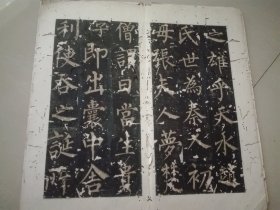 之雄乎天水趙
氏世為秦人初
母張夫人夢梵
僧謂曰當生貴
子即出囊中舍
利使吞之誕所